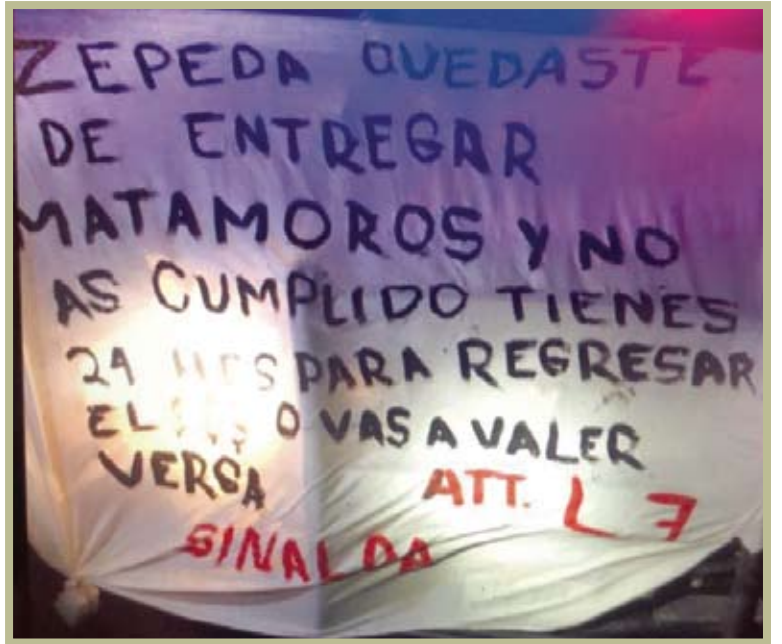 ZEPEDA QUEDASTE
DE ENTREGAR
MATAMOROS Y NO
AS CUMPLIDO TIENES
24 PARA REGRESAR
EL O VAS A VALER
VERGA ATT. L 7
SINALOA